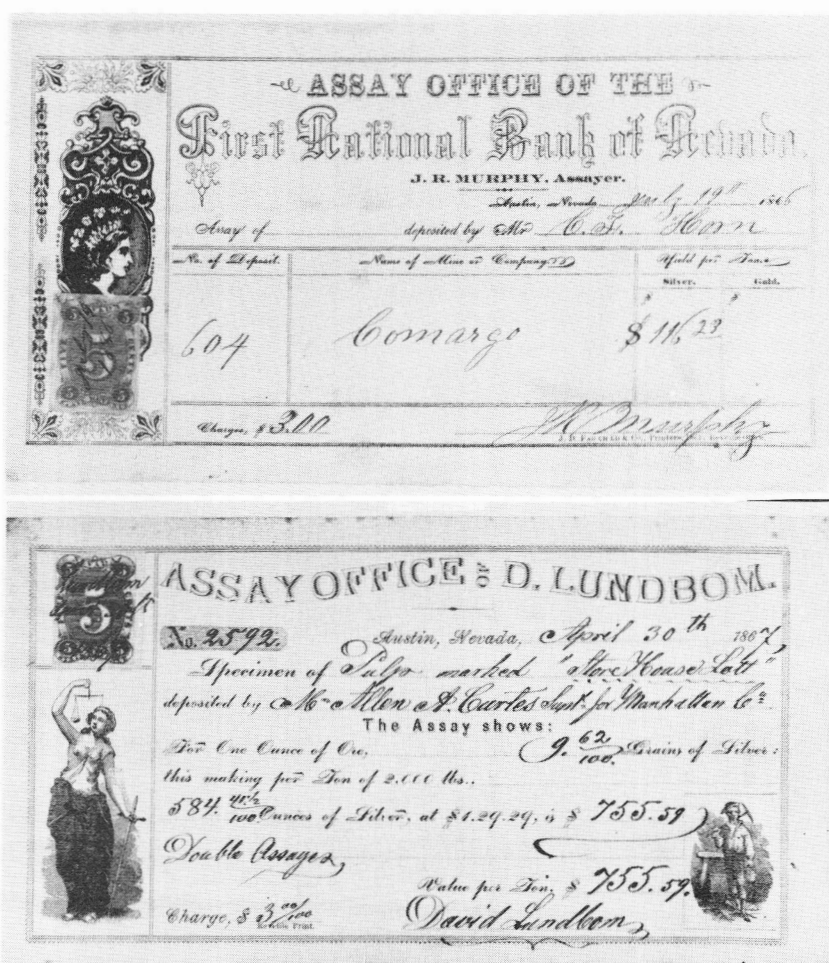 ASSAY OFFICE OF THE
First National Bank of Nevada.
J. R. MURPHY, Assayer.
Austin, Nevada July 19th 1866
Assay of deposited by Mr C. F. Horn
No. of Deposit. Name of Mine or Company. Yield per Ton.
Silver. Gold.
604 Comargo $ 116 23
5
FIVE CENTS
Charges, $ 3.00 J R Murphy
ASSAY OFFICE OF D. LUNDBOM.
5
No. 2592. Austin, Nevada, April 30th 1867,
Specimen of Pulp marked "Store House Lott"
deposited by Mr Allen A. Curtis Supt. for Manhattan Co.
The Assay shows:
For One Ounce of Ore, 9. 62/100. Grains of Silver:
this making per Ton of 2,000 lbs.,
584. 41½/100 Ounces of Silver, at $1.29.29, is $ 755.59
Double Assayes,
Value per Ton, $ 755.59.
Charge, $ 3 00/100 David Lundbom,
Reveille Print.